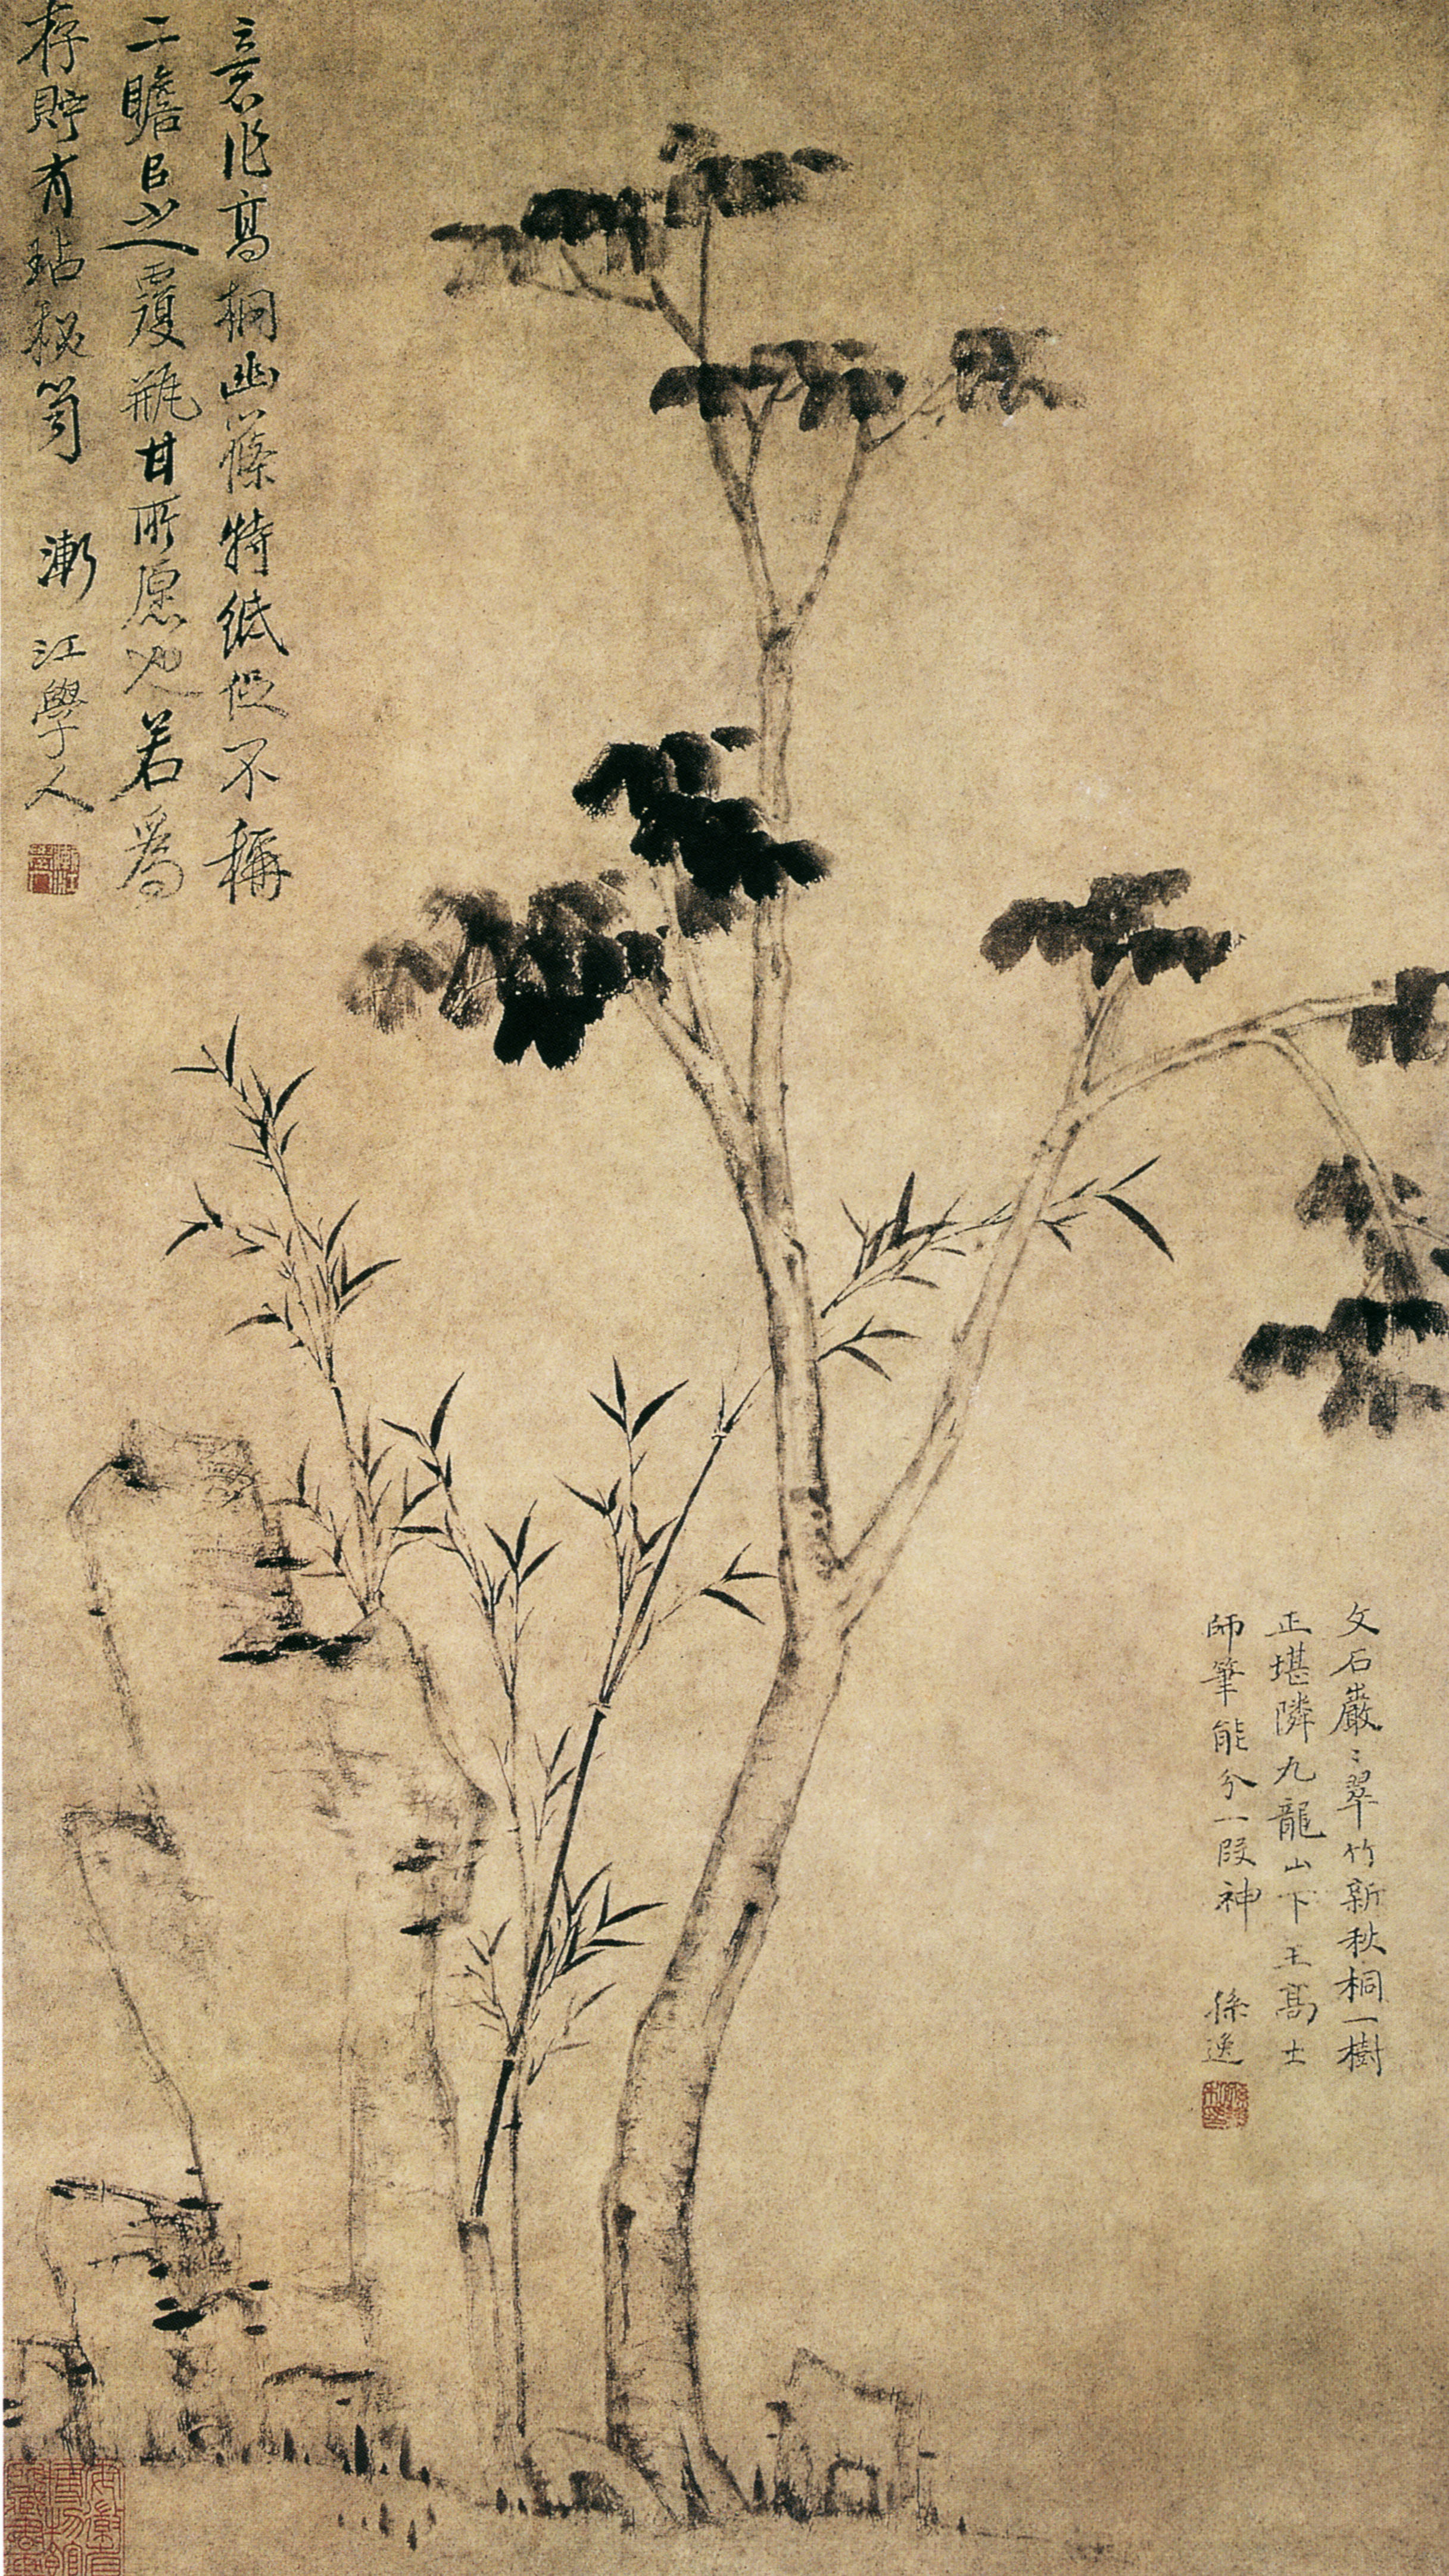 意作高桐幽篠特紙但不稱
二瞻㠯之覆瓶甘所愿也若爲
存貯有玷秘笥 漸江學人
文石巖〻翠竹新秋桐一樹
正堪隣九龍山下王高士
師筆能分一段神 孫逸
安徽省
博物館